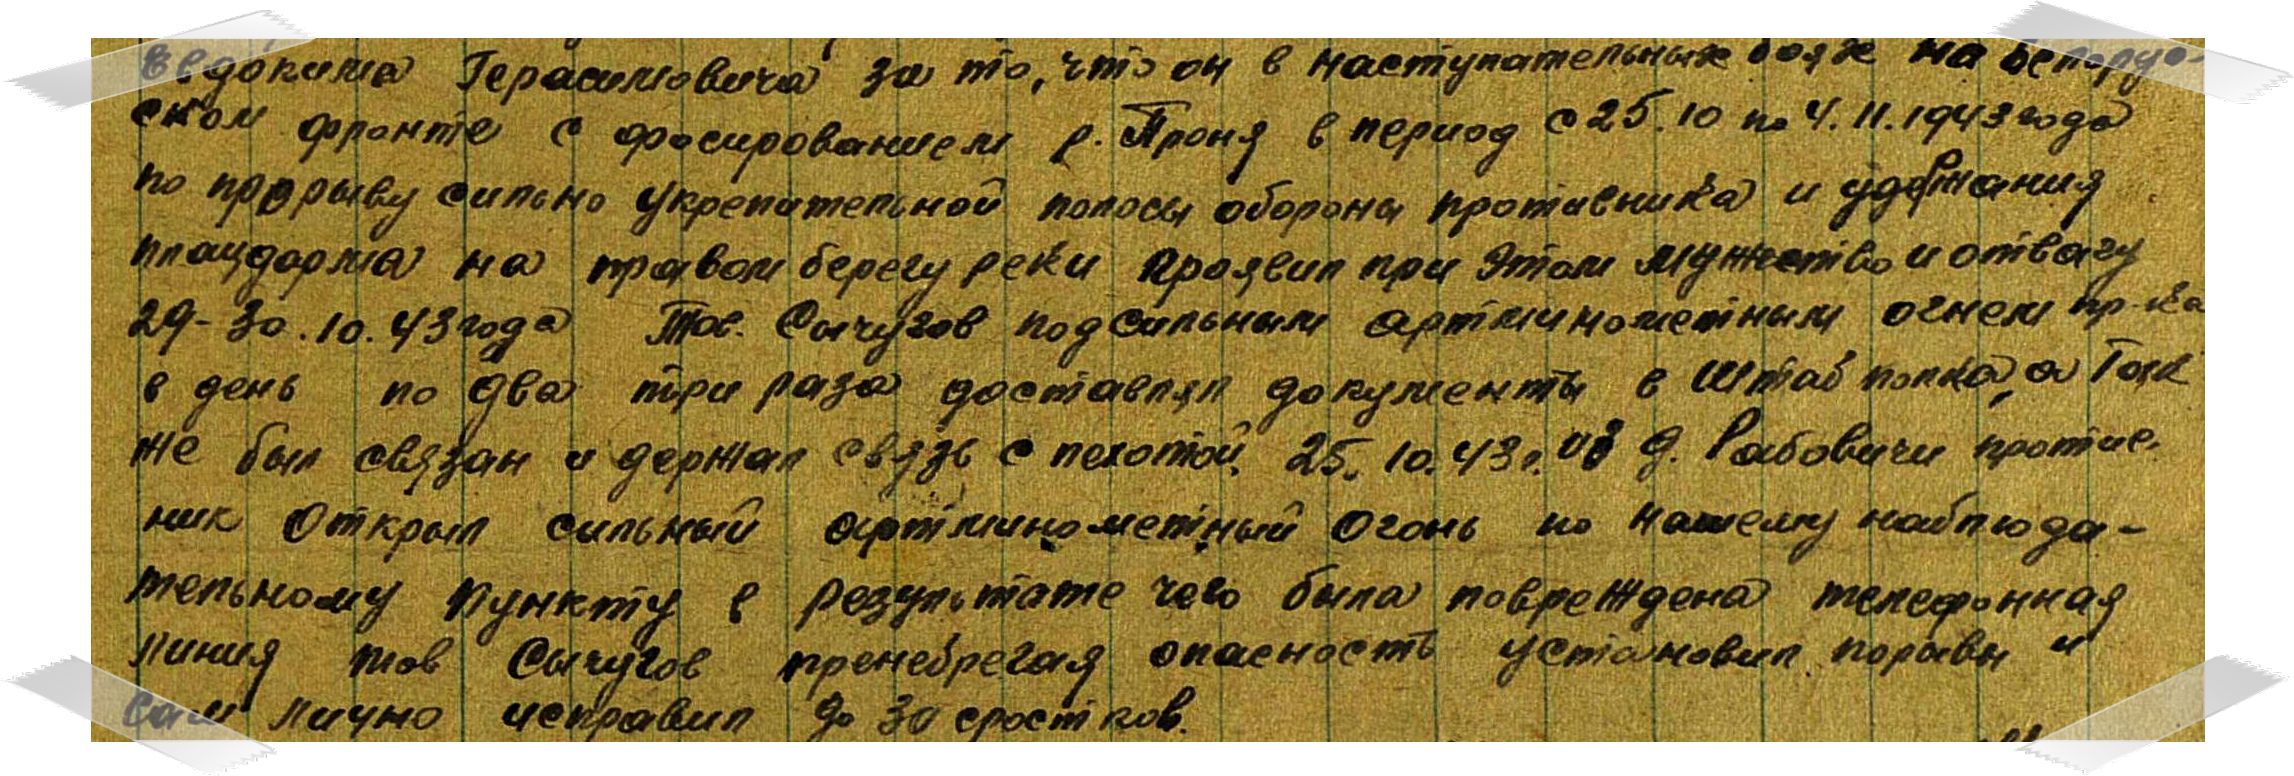 Евдокима Герасимовича за то, что он в наступательных боях на Белорус-
ском фронте с фосированием р. Проня в период с 25.10 по 4.11.1943 года
по прорыву сильно укрепительной полосы обороны противника и удержания
плацдарма на правом берегу реки проявил при этом мужество и отвагу
29-30.10.43 года Тов. Сычугов под сильным артминометным огнем пр-ка
в день по два три раза доставлял документы в штаб полка, а так
же был связан и держал связь с пехотой. 25.10.43 г. д. Рабовичи против-
ник открыл сильный артминометный огонь по нашему наблюда-
тельному пункту в результате чего была повреждена телефонная
линия тов Сычугов пренебрегая опасность установил порывы и
сам лично исправил до 30 сростков.